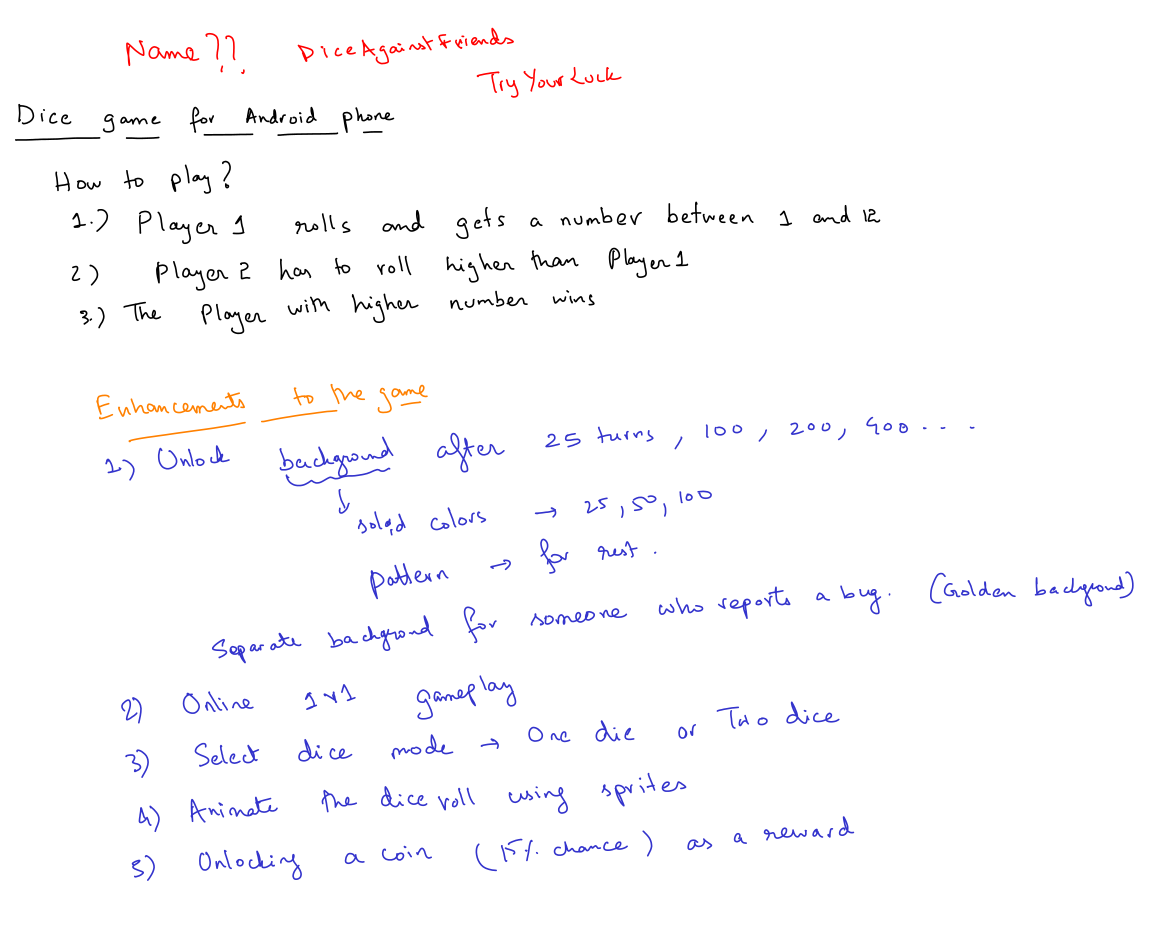 Name??
DiceAgainstFriends
TryYourLuck
Dice game for Android phone
How to play?
1.) Player 1 rolls and gets a number between 1 and 12
2) Player 2 has to roll higher than Player 1
3.) The Player with higher number wins
Enhancements to the game
1) Unlock background after 25 turns, 100, 200, 400....
solid colors → 25, 50, 100
pattern → for rest.
Separate background for someone who reports a bug. (Golden background)
2) Online 1v1 gameplay
3) Select dice mode → One die or Two dice
4) Animate the dice roll using sprites
5) Unlocking a coin (15% chance) as a reward